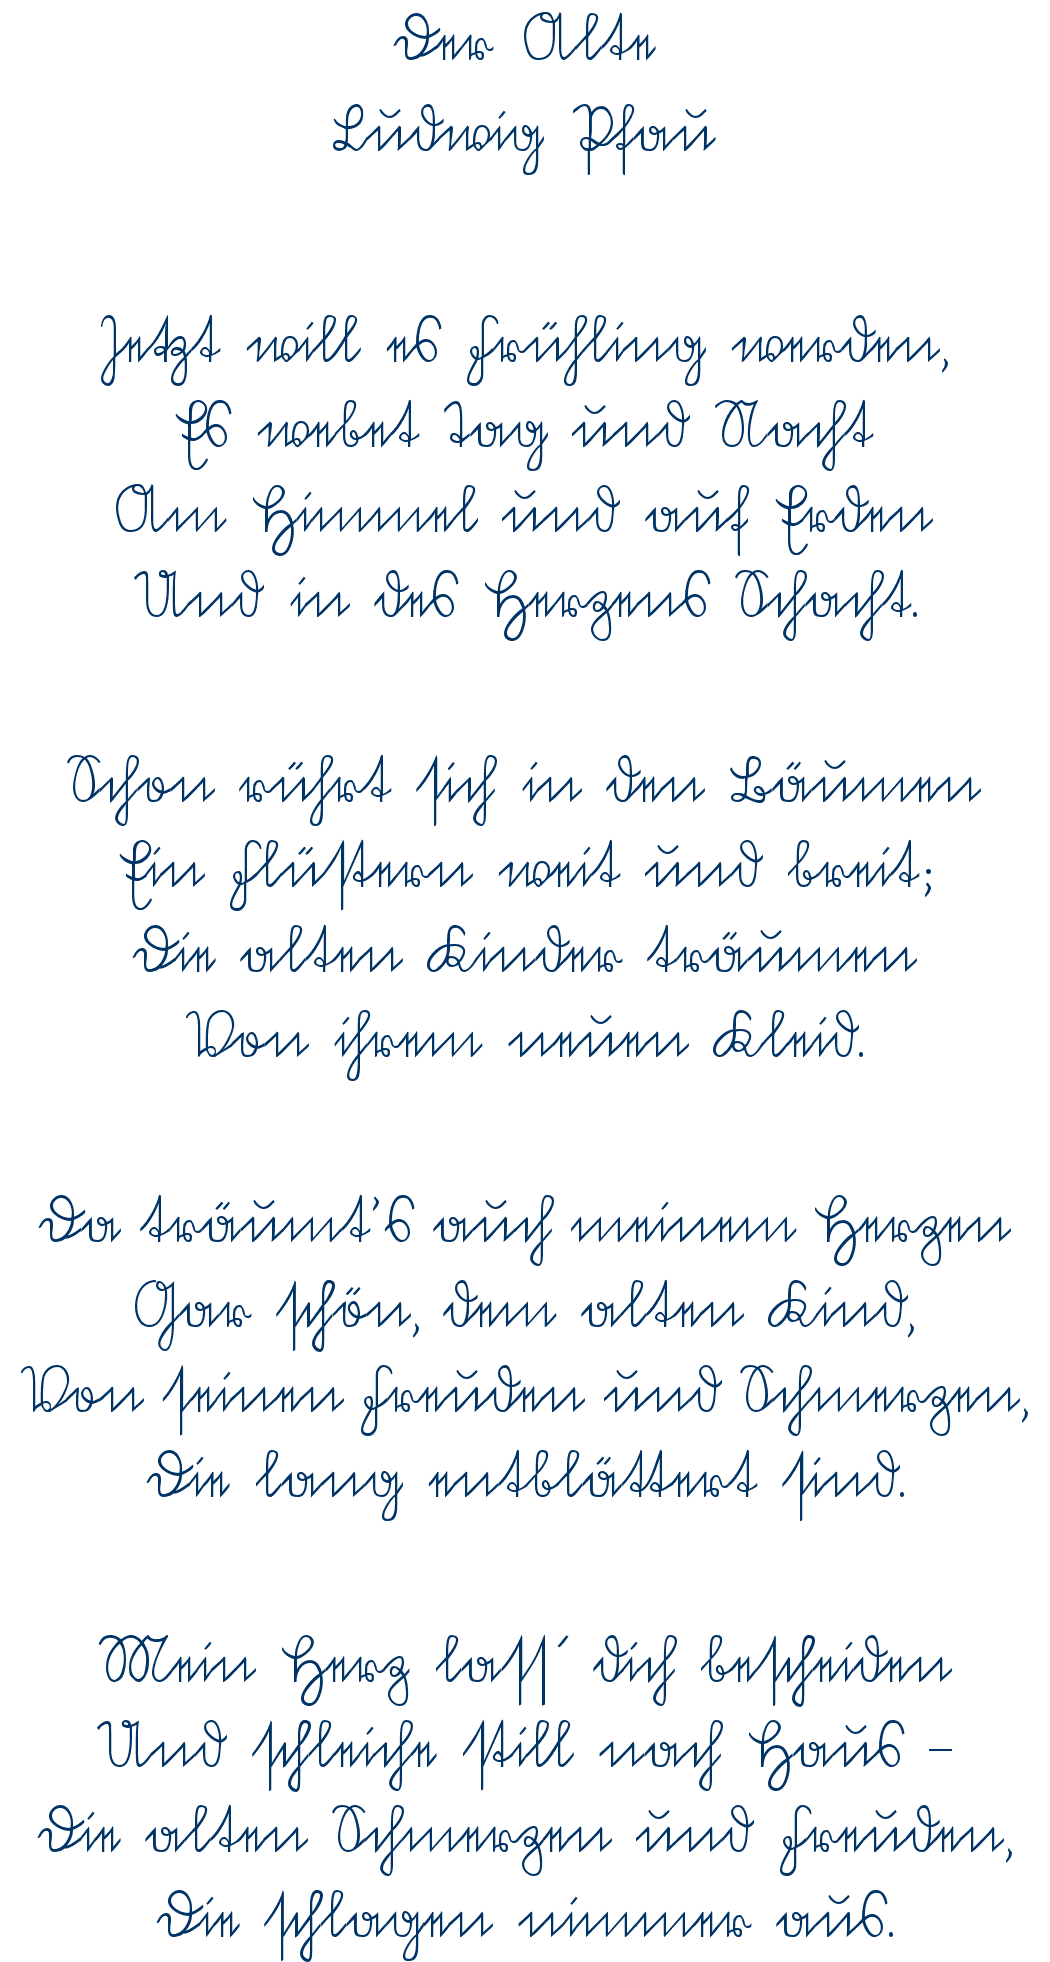 Der Alte
Ludwig Pfau
Jetzt will es Frühling werden,
Es webet Tag und Nacht
Am Himmel und auf Erden
Und in des Herzens Schacht.
Schon rührt sich in den Bäumen
Ein Flüstern weit und breit;
Die alten Kinder träumen
Von ihrem neuen Kleid.
Da träumt's auch meinem Herzen
Gar schön, dem alten Kind,
Von seinen Freuden und Schmerzen,
Die lang entblättert sind.
Mein Herz lass´ dich bescheiden
Und schleiche still nach Haus –
Die alten Schmerzen und Freuden,
Die schlagen nimmer aus.